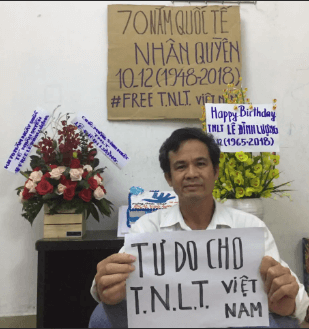 70 NĂM QUỐC TẾ
NHÂN QUYỀN
10.12 (1948-2018)
#FREE T.N.L.T. VIỆT NAM
Happy Birthday
T.N.L.T LÊ ĐÌNH LƯỢNG
(1965-2018)
TỰ DO CHO
T.N.L.T. VIỆT
NAM